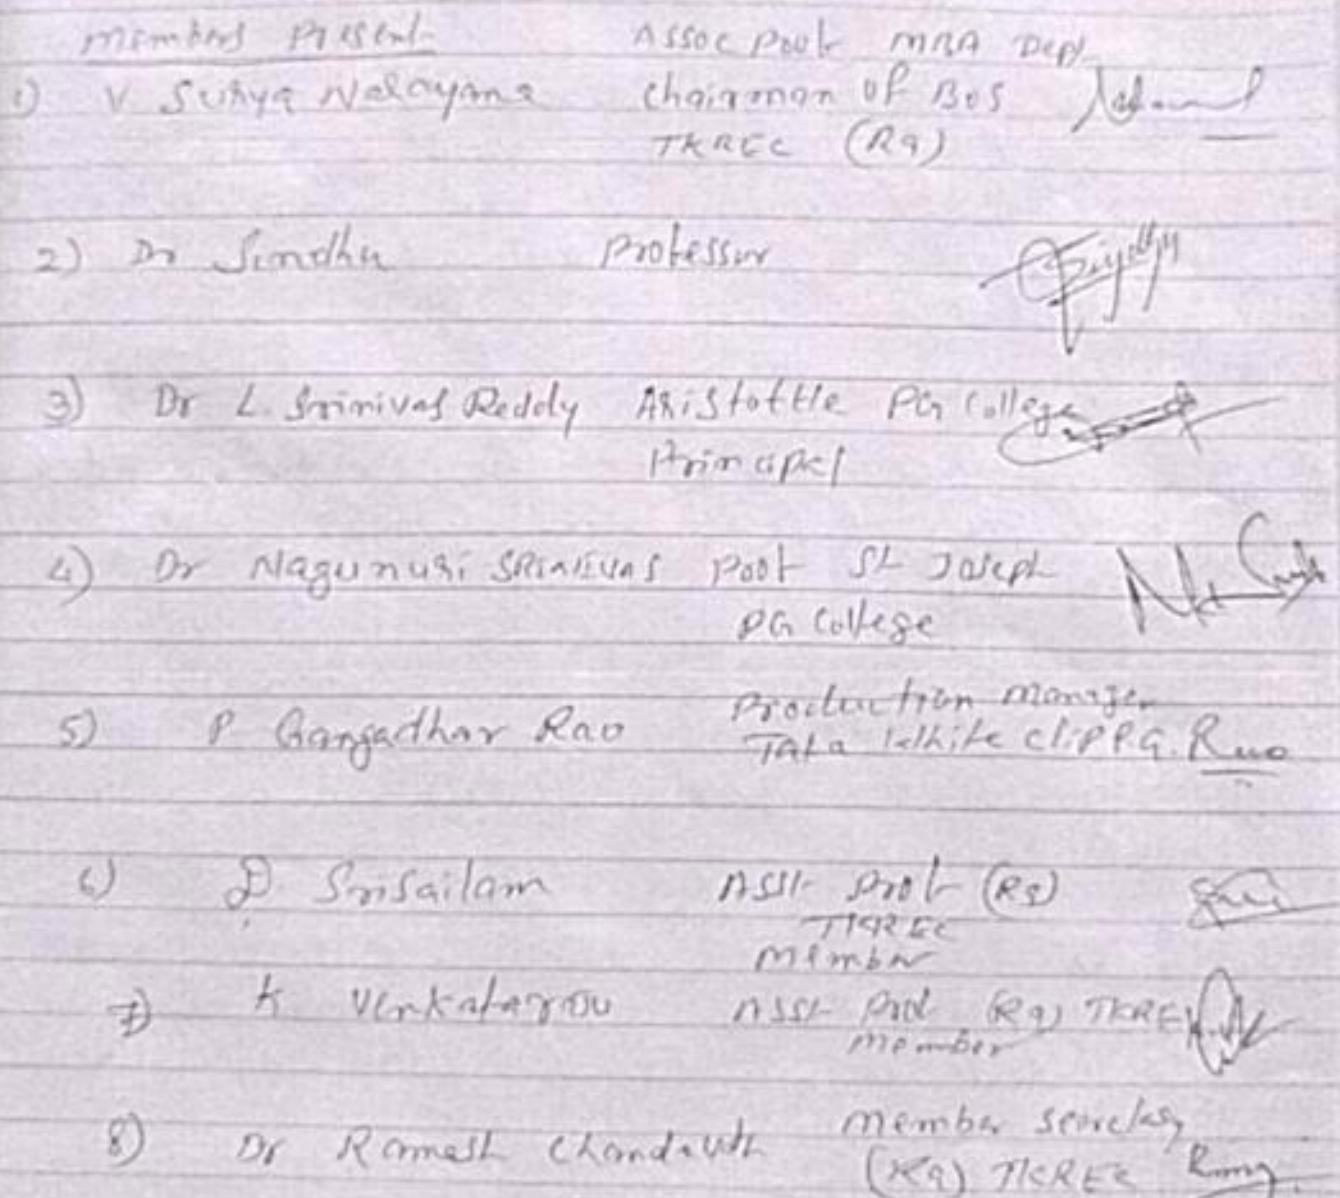 Members Present Assoc Prof MBA Dept
1) V Surya Narayana Chairman of BOS
TKREC (R9)
2) Dr Sindhu Professor
3) Dr L. Srinivas Reddy Aristottle PG College
Principal
4) Dr Nagunuri Srinivas Prof St Joseph
PG College
Production Manager
5) P Gangadhar Rao Tata White clip P.G. Rao
6) D Srisailam Asst Prof (R9)
TKREC
Member
7) K Venkatarao Asst Prof (R9) TKREC
Member
Member Secretary
8) Dr Ramesh (R9) TKREC